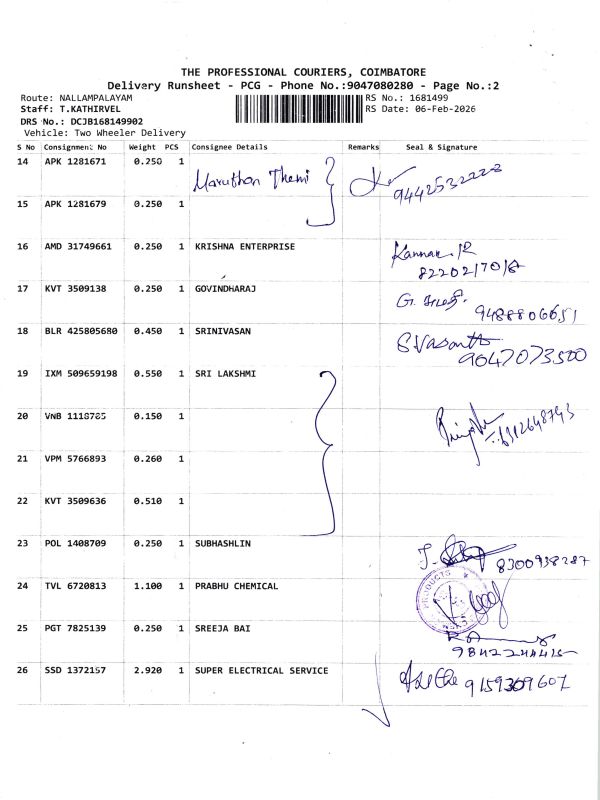 THE PROFESSIONAL COURIERS, COIMBATORE
Delivery Runsheet - PCG - Phone No.:9047080280 - Page No.:2
Route: NALLAMPALAYAM
Staff: T.KATHIRVEL
DRS No.: DCJB168149902
Vehicle: Two Wheeler Delivery
RS No.: 1681499
RS Date: 06-Feb-2026
S No Consignment No Weight PCS Consignee Details Remarks Seal & Signature
14 APK 1281671 0.250 1 9442532223
15 APK 1281679 0.250 1
16 AMD 31749661 0.250 1 KRISHNA ENTERPRISE Kannan. R
8220217018
17 KVT 3509138 0.250 1 GOVINDHARAJ G. 9488806651
18 BLR 425805680 0.450 1 SRINIVASAN S.Vasanth
9047073500
19 IXM 509659198 0.550 1 SRI LAKSHMI
20 VNB 1118785 0.150 1
21 VPM 5766893 0.260 1
22 KVT 3509636 0.510 1
23 POL 1408709 0.250 1 SUBHASHLIN 8300938287
24 TVL 6720813 1.100 1 PRABHU CHEMICAL PRODUCTS
25 PGT 7825139 0.250 1 SREEJA BAI
9842244415
26 SSD 1372157 2.920 1 SUPER ELECTRICAL SERVICE 9159309607